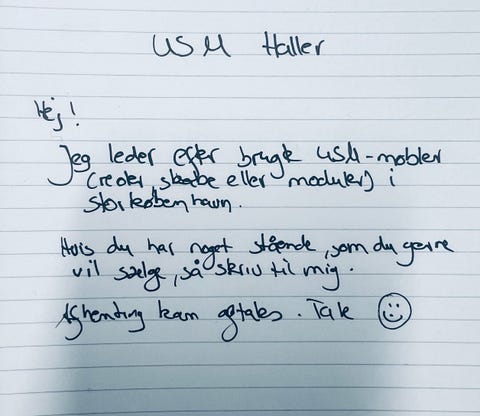 USM Haller
Hej!
Jeg leder efter brugte USM-møbler
(reoler, skabe eller moduler) i
Storkøbenhavn.
Hvis du har noget stående, som du gerne
vil sælge, så skriv til mig.
Afhentning kan aftales. Tak ☺